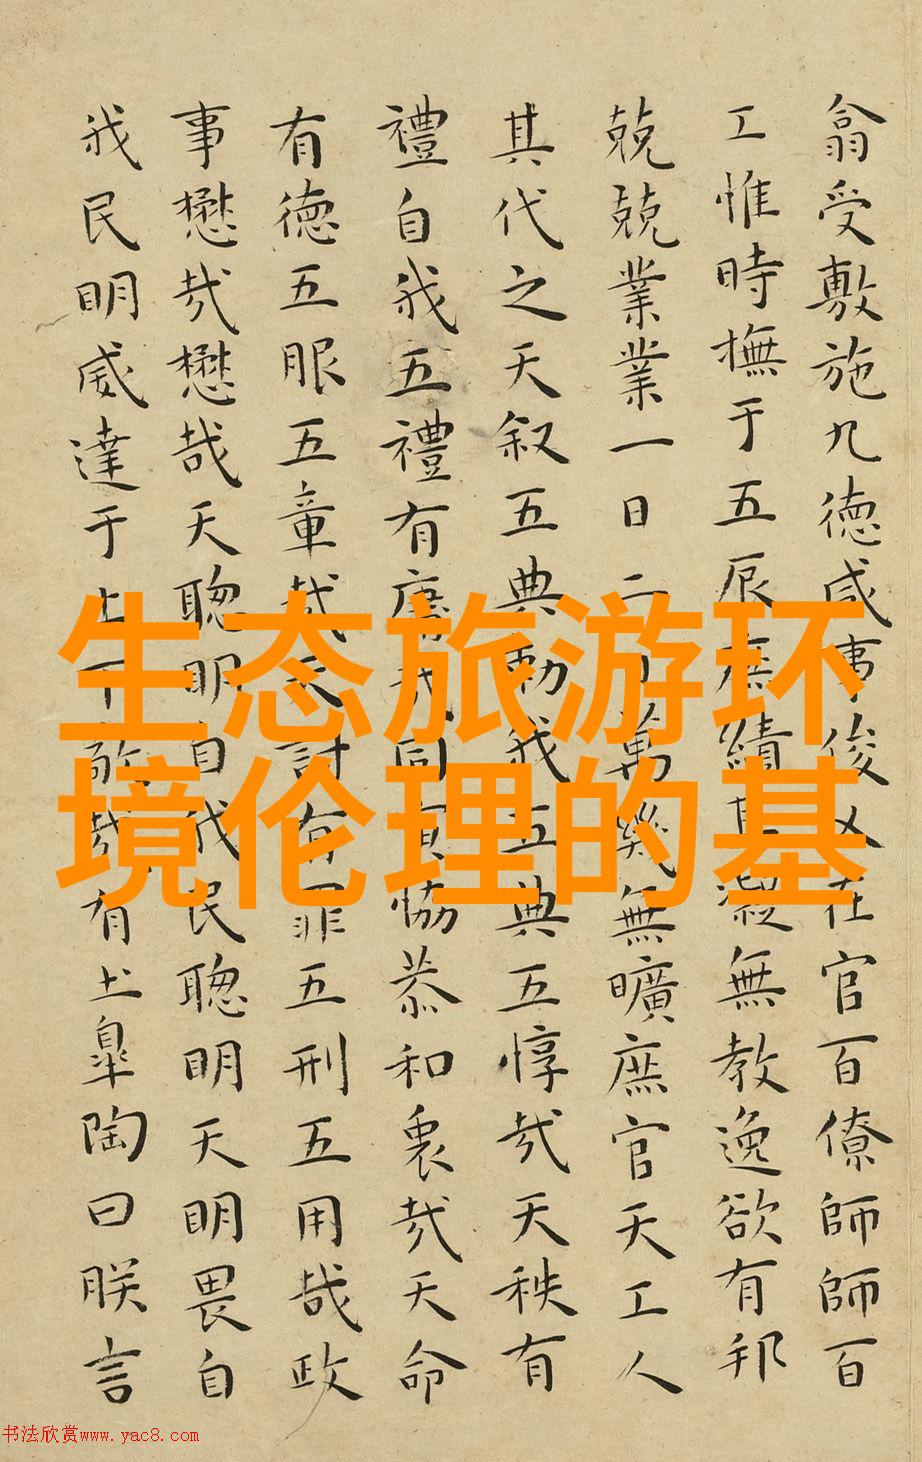 翕受敷施九德咸事俊乂在官百僚師師百
工惟時撫于五辰庶績其凝無教逸欲有邦
兢兢業業一日二日萬幾無曠庶官天工人
其代之天叙五典勑我五典五惇哉天秩有
禮自我五禮有庸哉同寅恊恭和衷哉天命
有德五服五章哉天討有罪五刑五用哉政
事懋哉懋哉天聰明自我民聰明天明畏自
我民明威達于上下敬哉有土皐陶曰朕言
生态旅游环
境伦理的基
书法欣赏www.yac8.com